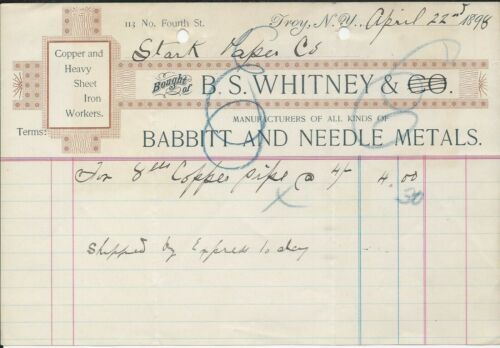 113 No. Fourth St.
Troy, N.Y., April 22nd 1898
Stark Paper Co
Copper and
Heavy
Sheet
Iron
Workers.
Bought of
B. S. WHITNEY & CO.
MANUFACTURERS OF ALL KINDS OF
Terms:
BABBITT AND NEEDLE METALS.
For 8 Copper pipe @ 4/- 4.00
x 30
Shipped by Express to day